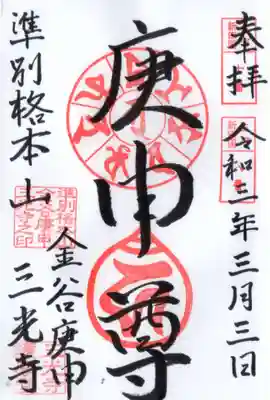 奉拝
令和三年三月三日
庚申尊
準別格本山
金谷庚申
三光寺